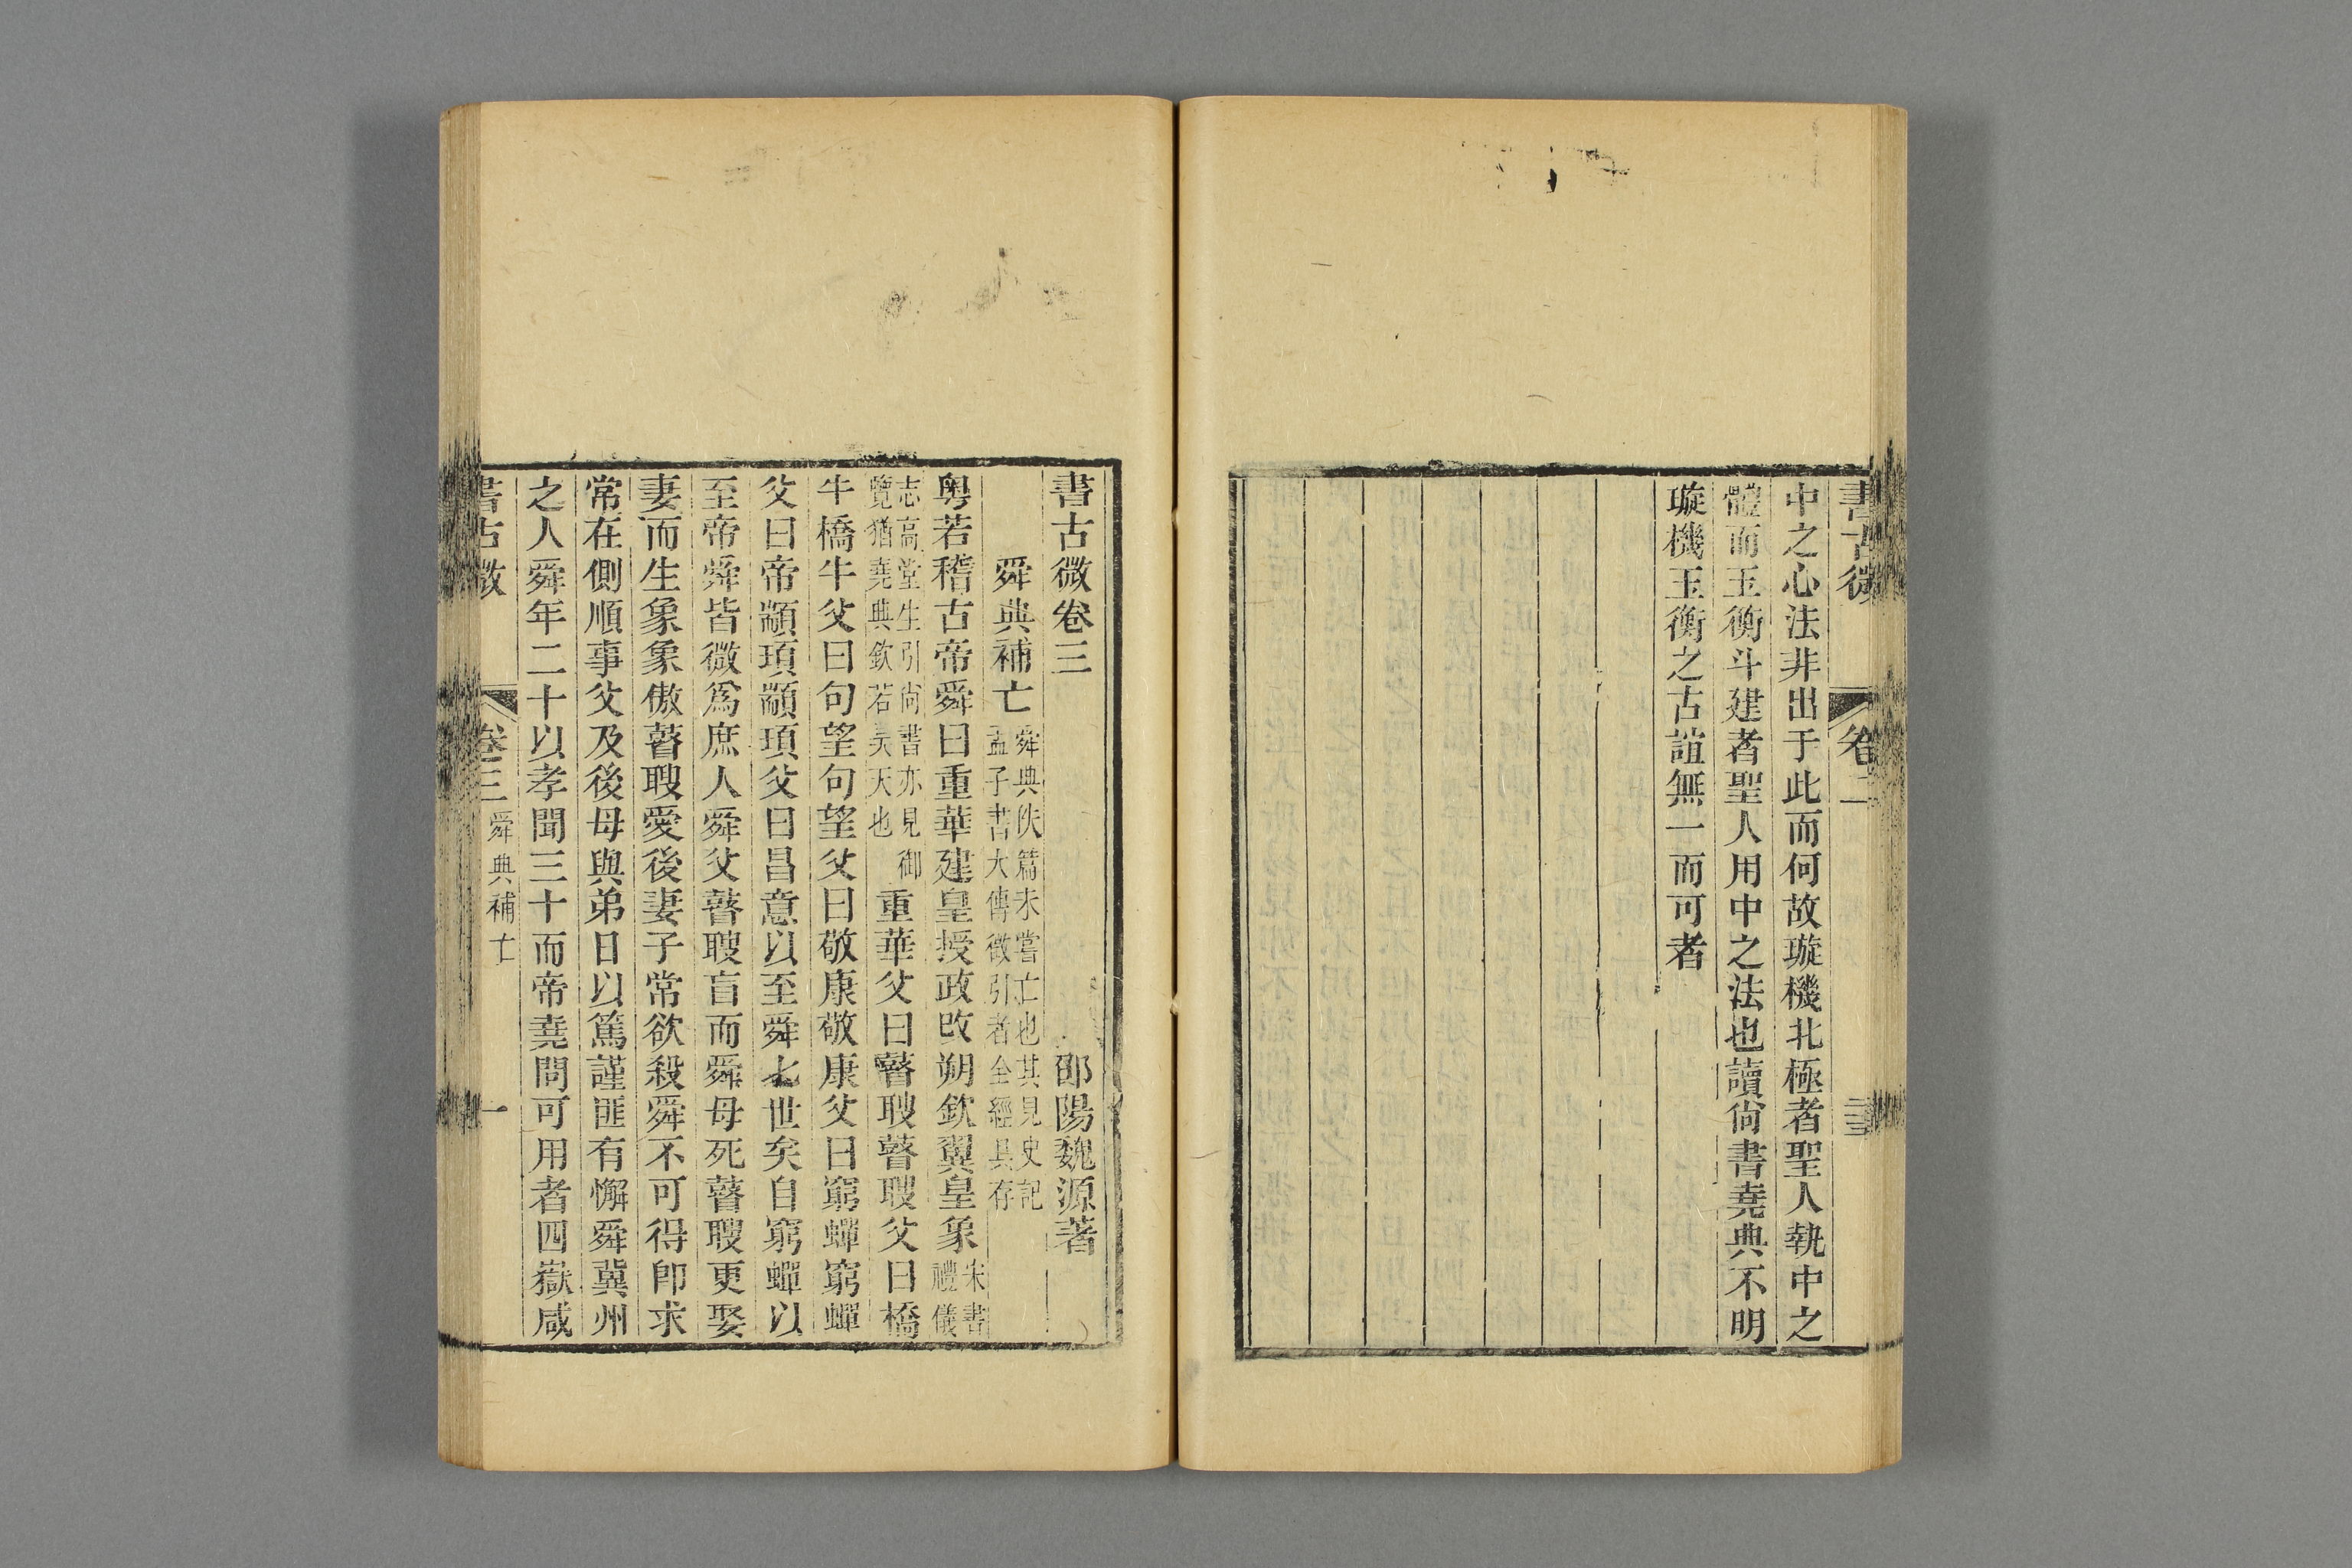 書古微 卷二
中之心法非出于此而何故璇機北極者聖人執中之
體而玉衡斗建者聖人用中之法也讀尙書堯典不明
璇機玉衡之古誼無一而可者
書古微卷三
邵陽魏源著
舜典補亡
舜典佚篇未嘗亡也其見史記
孟子書大傳徵引者全經具存
粵若稽古帝舜曰重華建皇授政改朔欽翼皇象
宋書
禮儀
志高堂生引尙書亦見御
覽猶堯典欽若昊天也
重華父曰瞽瞍瞽瞍父曰橋
牛橋牛父曰句望句望父曰敬康敬康父曰窮蟬窮蟬
父曰帝顓頊顓頊父曰昌意以至舜七世矣自窮蟬以
至帝舜皆微爲庶人舜父瞽瞍盲而舜母死瞽瞍更娶
妻而生象象傲瞽瞍愛後妻子常欲殺舜不可得卽求
常在側順事父及後母與弟日以篤謹匪有懈舜冀州
之人舜年二十以孝聞三十而帝堯問可用者四嶽咸
書古微 卷三 舜典補亡 一